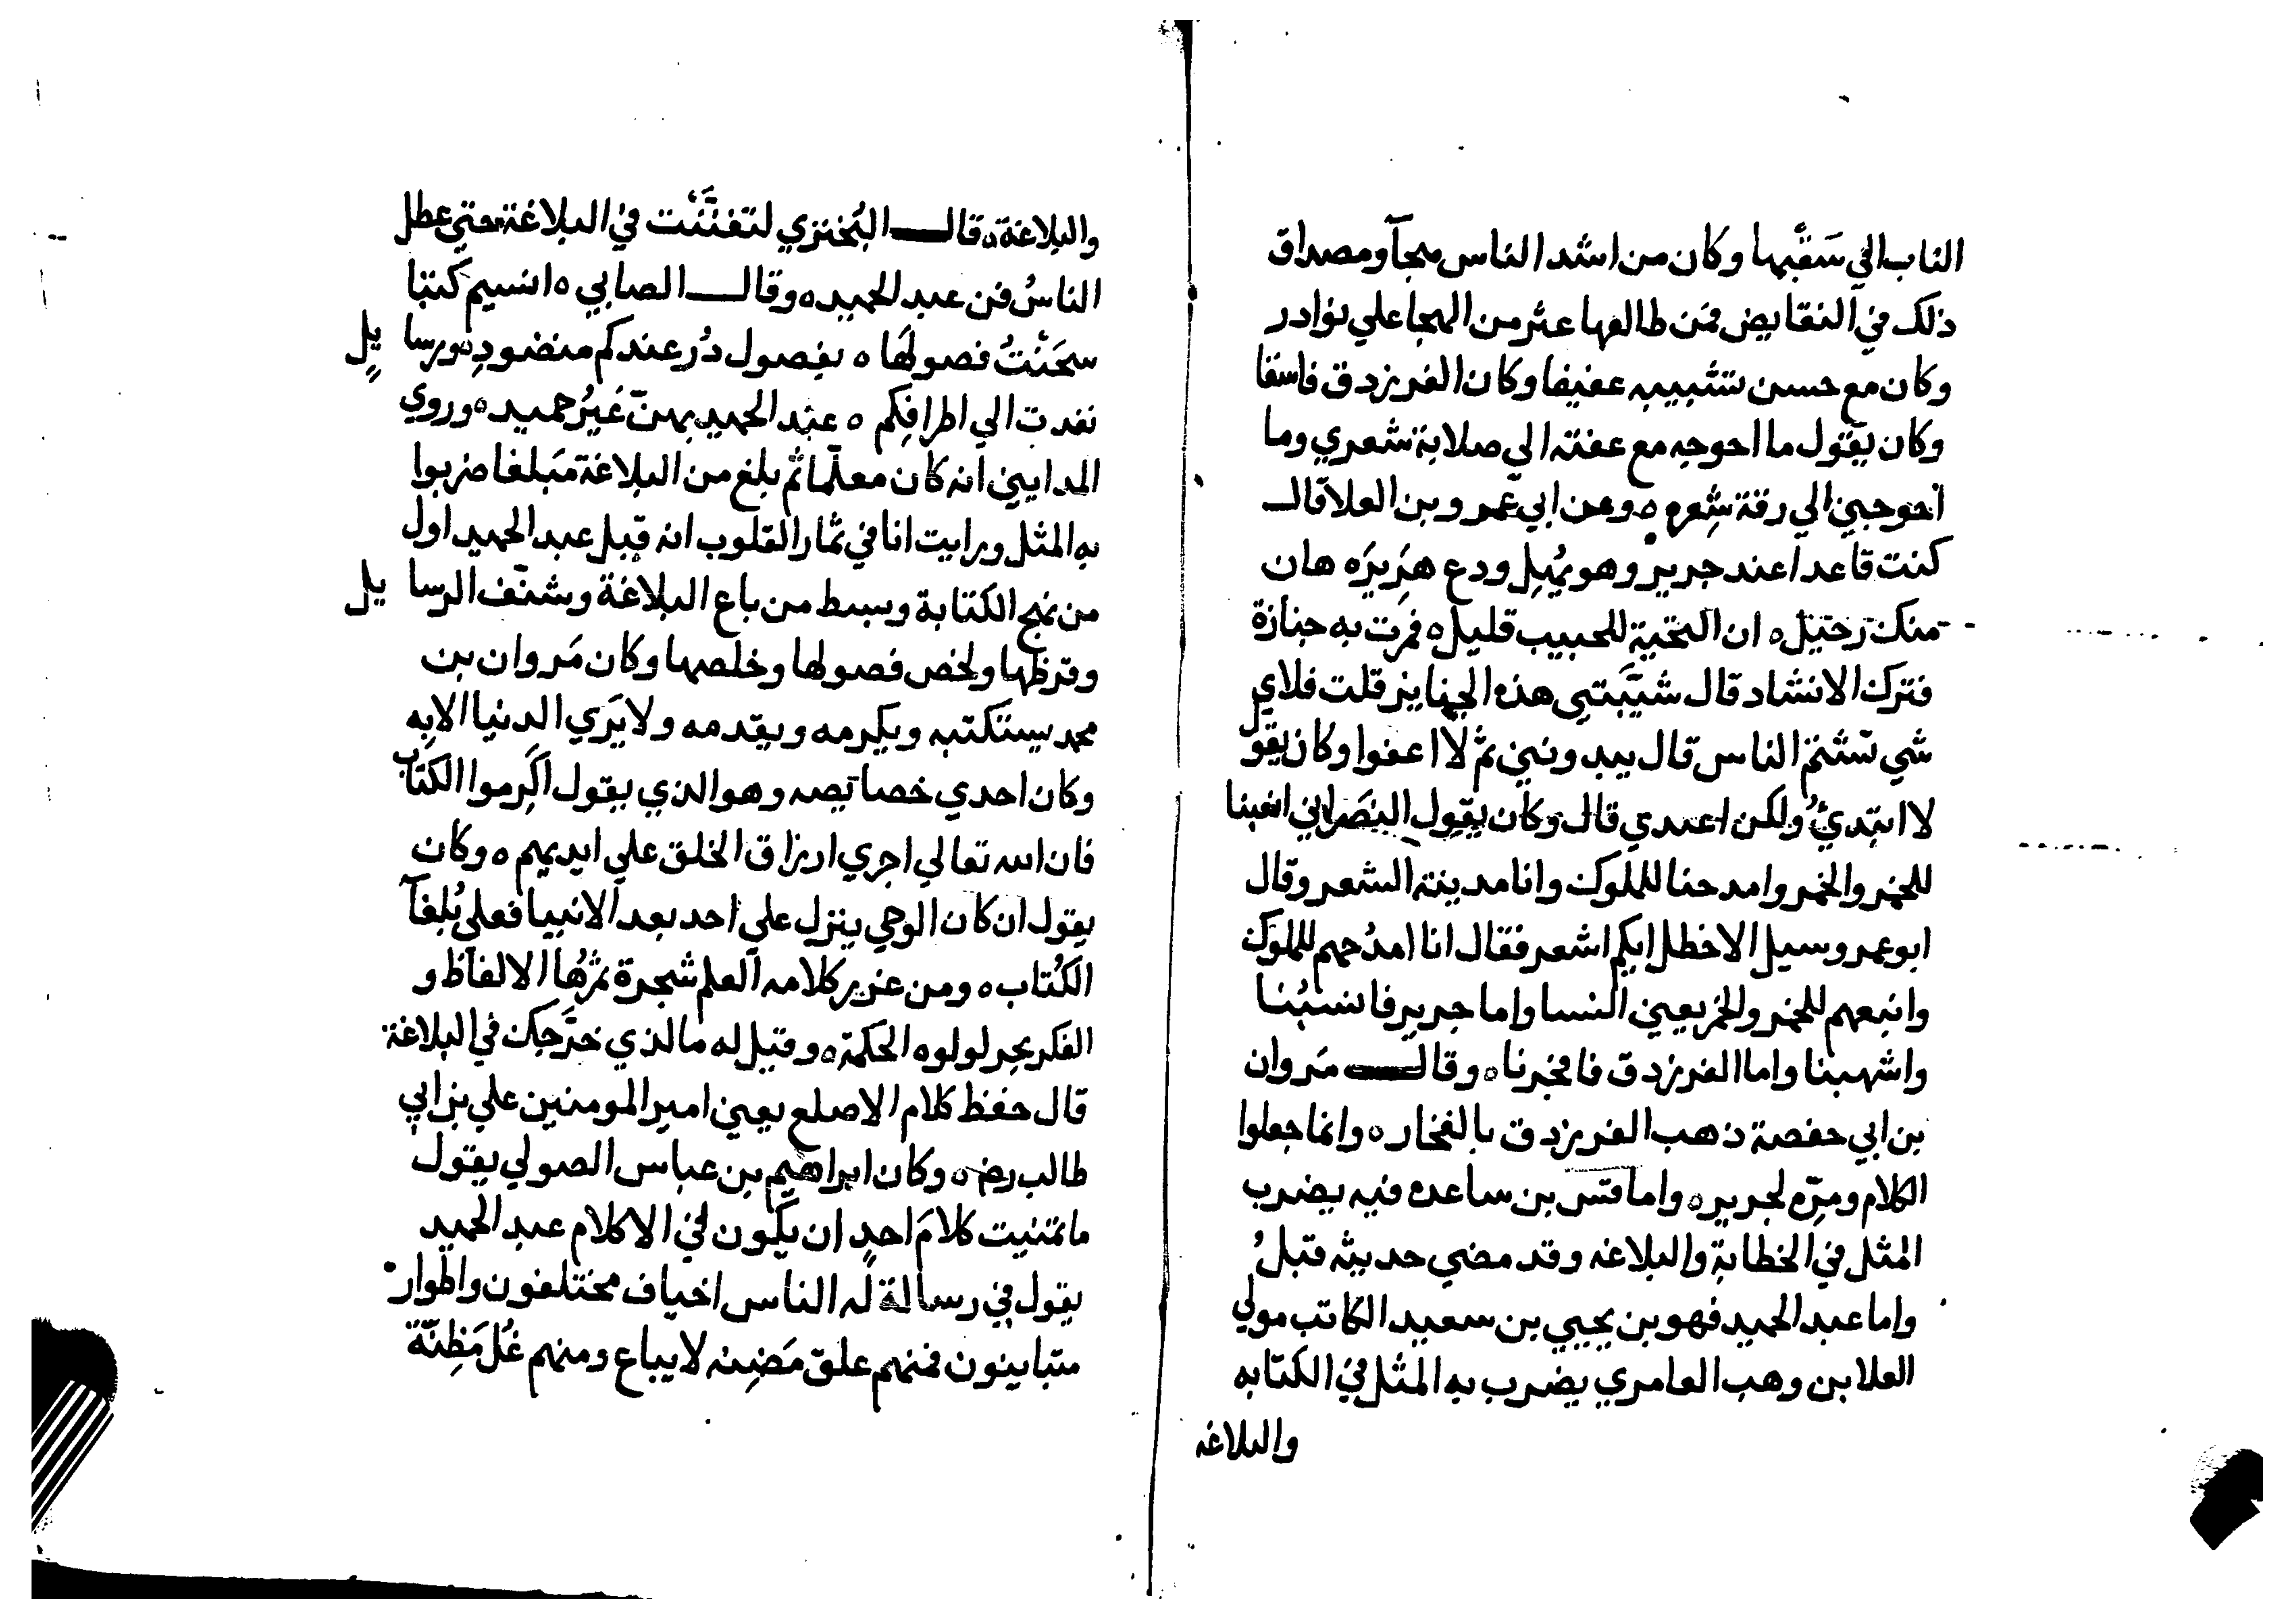 الناب التي سقبها وكان من اشد الناس هجآ ومصداق
ذلك في النقايض فمَن طالعها عثر من الهجا علي نوادر
وكان مع حسن تشبيبه عفيفا وكان الفرزدق فاسقا
وكان يقول ما احوجه مع عفته الي صلابة شعري وما
احوجني الي رقة شِعره ه وعن ابي عمرو بن العلا قالــ
كنت قاعدا عند جرير وهو يُمِل ودع هَرِيرَه هان
منك رحيل ه ان التحية للحبيب قليل ه فمرت به جنازة
فترك الانشاد قال شيّبَتني هذه الجنايز قلت فلاي
شي تشتم الناس قال يبدونني ثم لا اعفوا وكان يقول
لا ابتدئُ ولكن اعتدي قال وكان يقول النصَراني انعتنا
للخمر والحمر وامدحنا للملوك وانا مدينة الشعر وقال
ابو عمرو سيل الاخطل ايكم اشعر فقال انا امدُحهم للملوك
وانعتهم للخمر والحمر يعني النسا واما جرير فانسبُنا
واشهبنا واما الفرزدق فافخرنا ه وقالـــ مَروان
بن ابي حفصة ذهب الفرزدق بالفخار ه وانما جعلوا
الكلام ومرّه لجرير ه واما قس بن ساعده فبه يضرب
المثل في الخطابة والبلاغه وقد مضي حديثه قبلُ
واما عبد الحميد فهو بن يحيي بن سعيد الكاتب مولي
العلا بن وهب العامري يضرب به المثل في الكتابه
والبلاغه
والبلاغة ه قالـــ البُحتري لتفنَّنْت في البلاغة حتي عطل
الناسُ فن عبد الحميد ه وقالـــ الصابي ه انسيم كتبا
سحَنْتُ فصولهَا ه بفصول دُر عندكم منضودِ ه ورسايل
نفدت الي اطرافِكم ه عبْد الحميد بهنّ غيرُ حميد ه وروي
المدايني انه كان معلّما ثم بلغ من البلاغة مَبلغا ضربوا
به المثل ورايت انا في ثمار القلوب انه قيل عبد الحميد اول
من نهج الكتابة وبسط من باع البلاغة وشنّف الرسايل
وقرظها ولخص فصولها وخلصها وكان مَروان بن
محمد يستكتبه ويكرمه ويقدمه ولا يَري الدنيا الا به
وكان احدي خصايصه وهو الذي يقول اكرموا الكتاب
فان الله تعالي اجري ارزاق الخلق علي ايديهم ه وكان
يقول ان كان الوحي ينزل علي احد بعد الانبيا فعلي بُلغآ
الكُتاب ه ومن عزير كلامه العلم شجرة ثمرُها الالفاظ و
الفكر بحر لولوه الحكمة ه وقيل له مالذي خرَّجك في البلاغة
قال حفظ كلام الاصلع يعني امير المومنين علي بن ابي
طالب رض ه وكان ابراهيم بن عباس الصولي يقول
ما تمنيت كلامَ احدٍ ان يكون لي الا كلام عبد الحميد
يقول في رسالة له الناس اخياف مختلفون واطوار
متباينون فمنهم علق مَضِنه لا يباع ومنهم غُل مَظِنّة